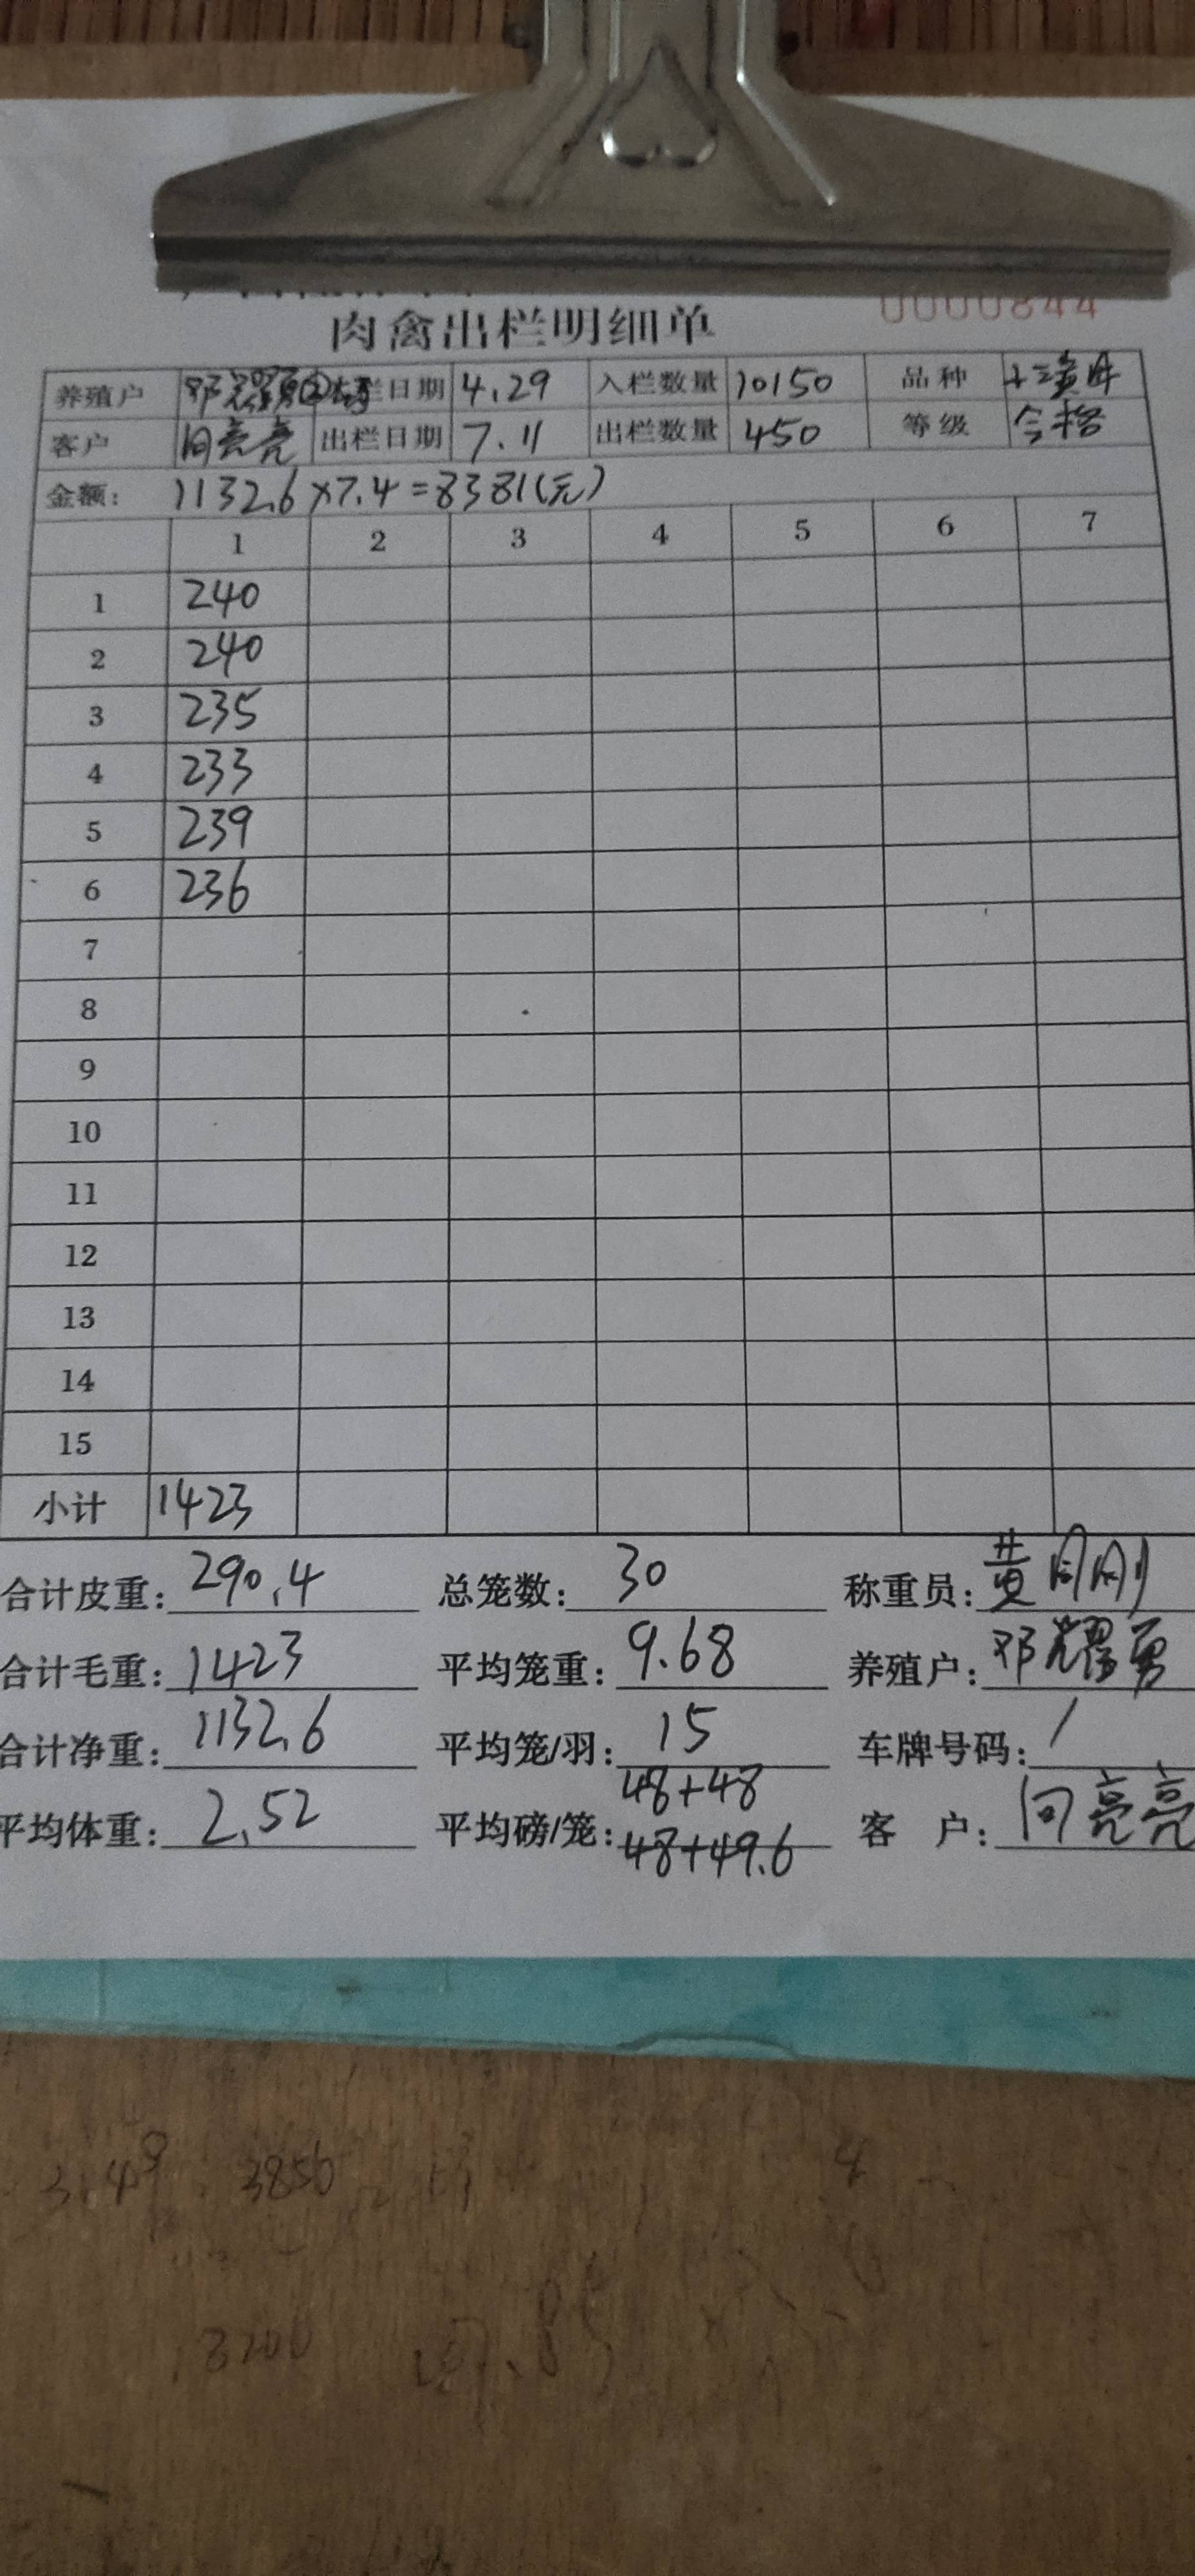 0000844
肉禽出栏明细单
养殖户 邓耀勇 栏日期 4.29 入栏数量 10150 品种
客户 向亮亮 出栏日期 7.11 出栏数量 450 等级 合格
金额: 1132.6×7.4=8381(元)
1 2 3 4 5 6 7
1 240
2 240
3 235
4 233
5 239
6 236
7
8
9
10
11
12
13
14
15
小计 1423
合计皮重: 290.4 总笼数: 30 称重员: 黄刚刚
合计毛重: 1423 平均笼重: 9.68 养殖户: 邓耀勇
合计净重: 1132.6 平均笼/羽: 15 车牌号码: /
平均体重: 2.52 平均磅/笼: 48+48 客 户: 向亮亮
48+49.6
3850
3200